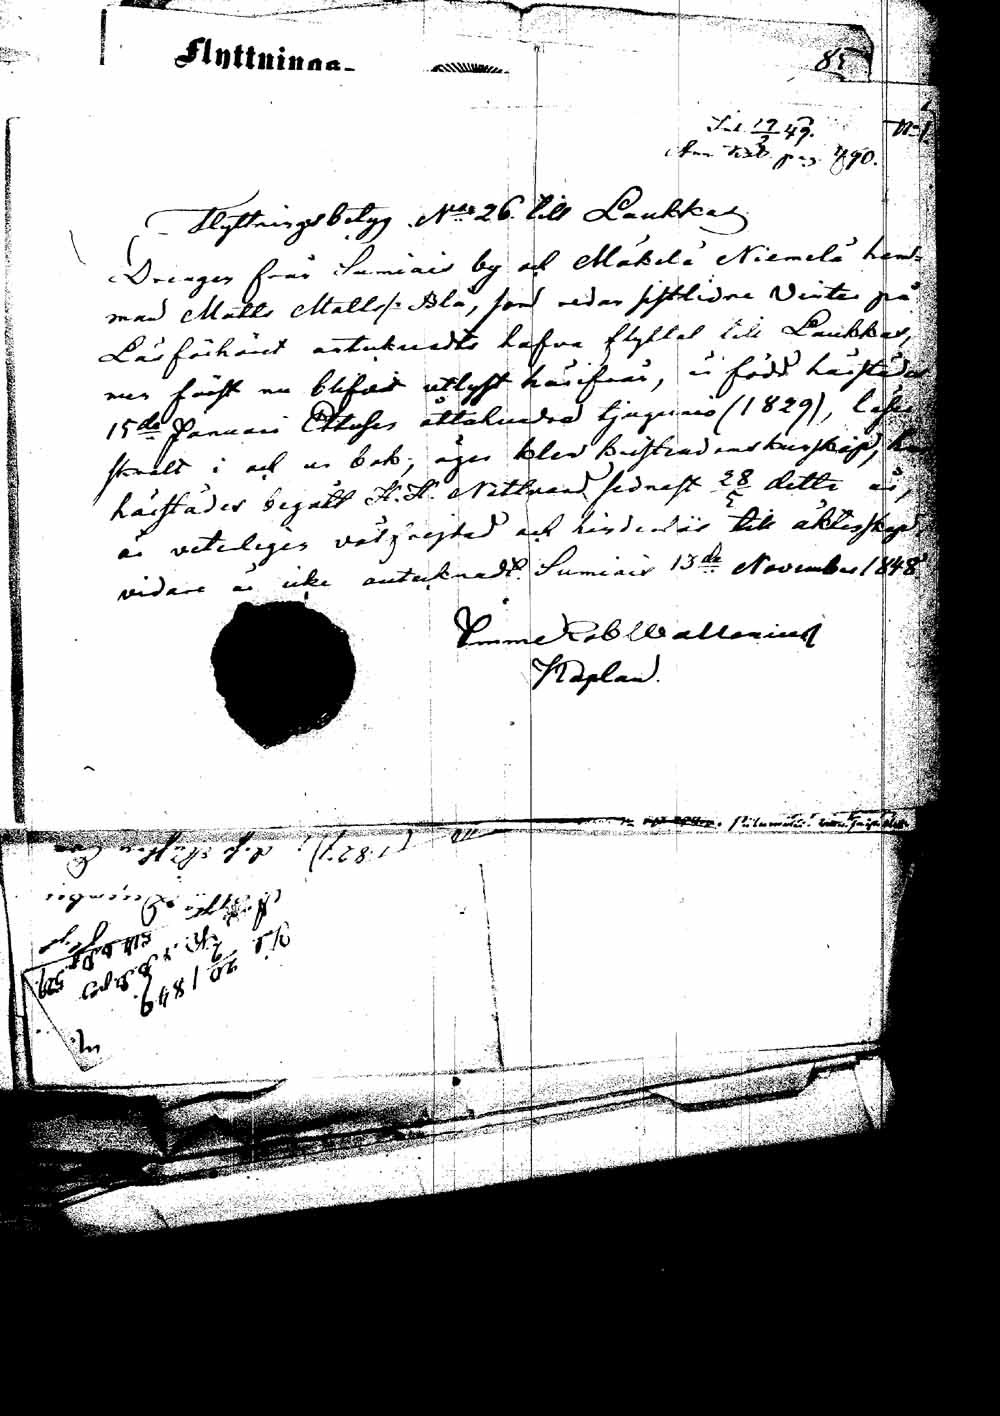 Flyttnings-
85
N:o 1.
Inl. 17/3 49.
Ann. Kstb. pag. 490.
Flyttningsbetyg N:o 26 till Laukkas
Drengen från Sumiais by och Mäkelä Niemelä hem-
man Matts Matts/: Blå, som redan sistlidne Vinter på
Läsförhöret antecknadts hafva flyttat till Laukkas,
men först nu blifvit utlyst härifrån, är född härstädes
15de Januari Ettusen åttahundra tjugunio (1829), läser
i och ur bok, äger klen kristendomskunskap, har
härstädes begått H. H. Nattvard sednast 28/5 detta år,
är veterligen välfrejdad och hinderlös till äktenskap,
vidare är icke antecknadt. Sumiais 13de November 1848.
Emme Rob Wallenius
Kaplan.
(1821)
December
20 1849
529